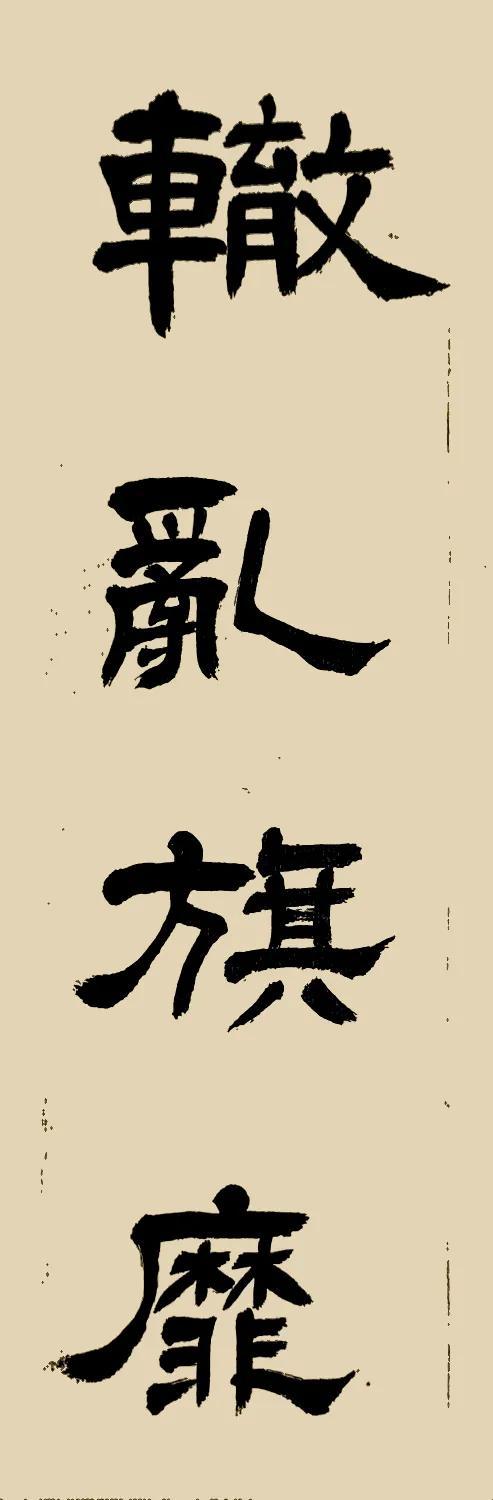 轍亂旗靡